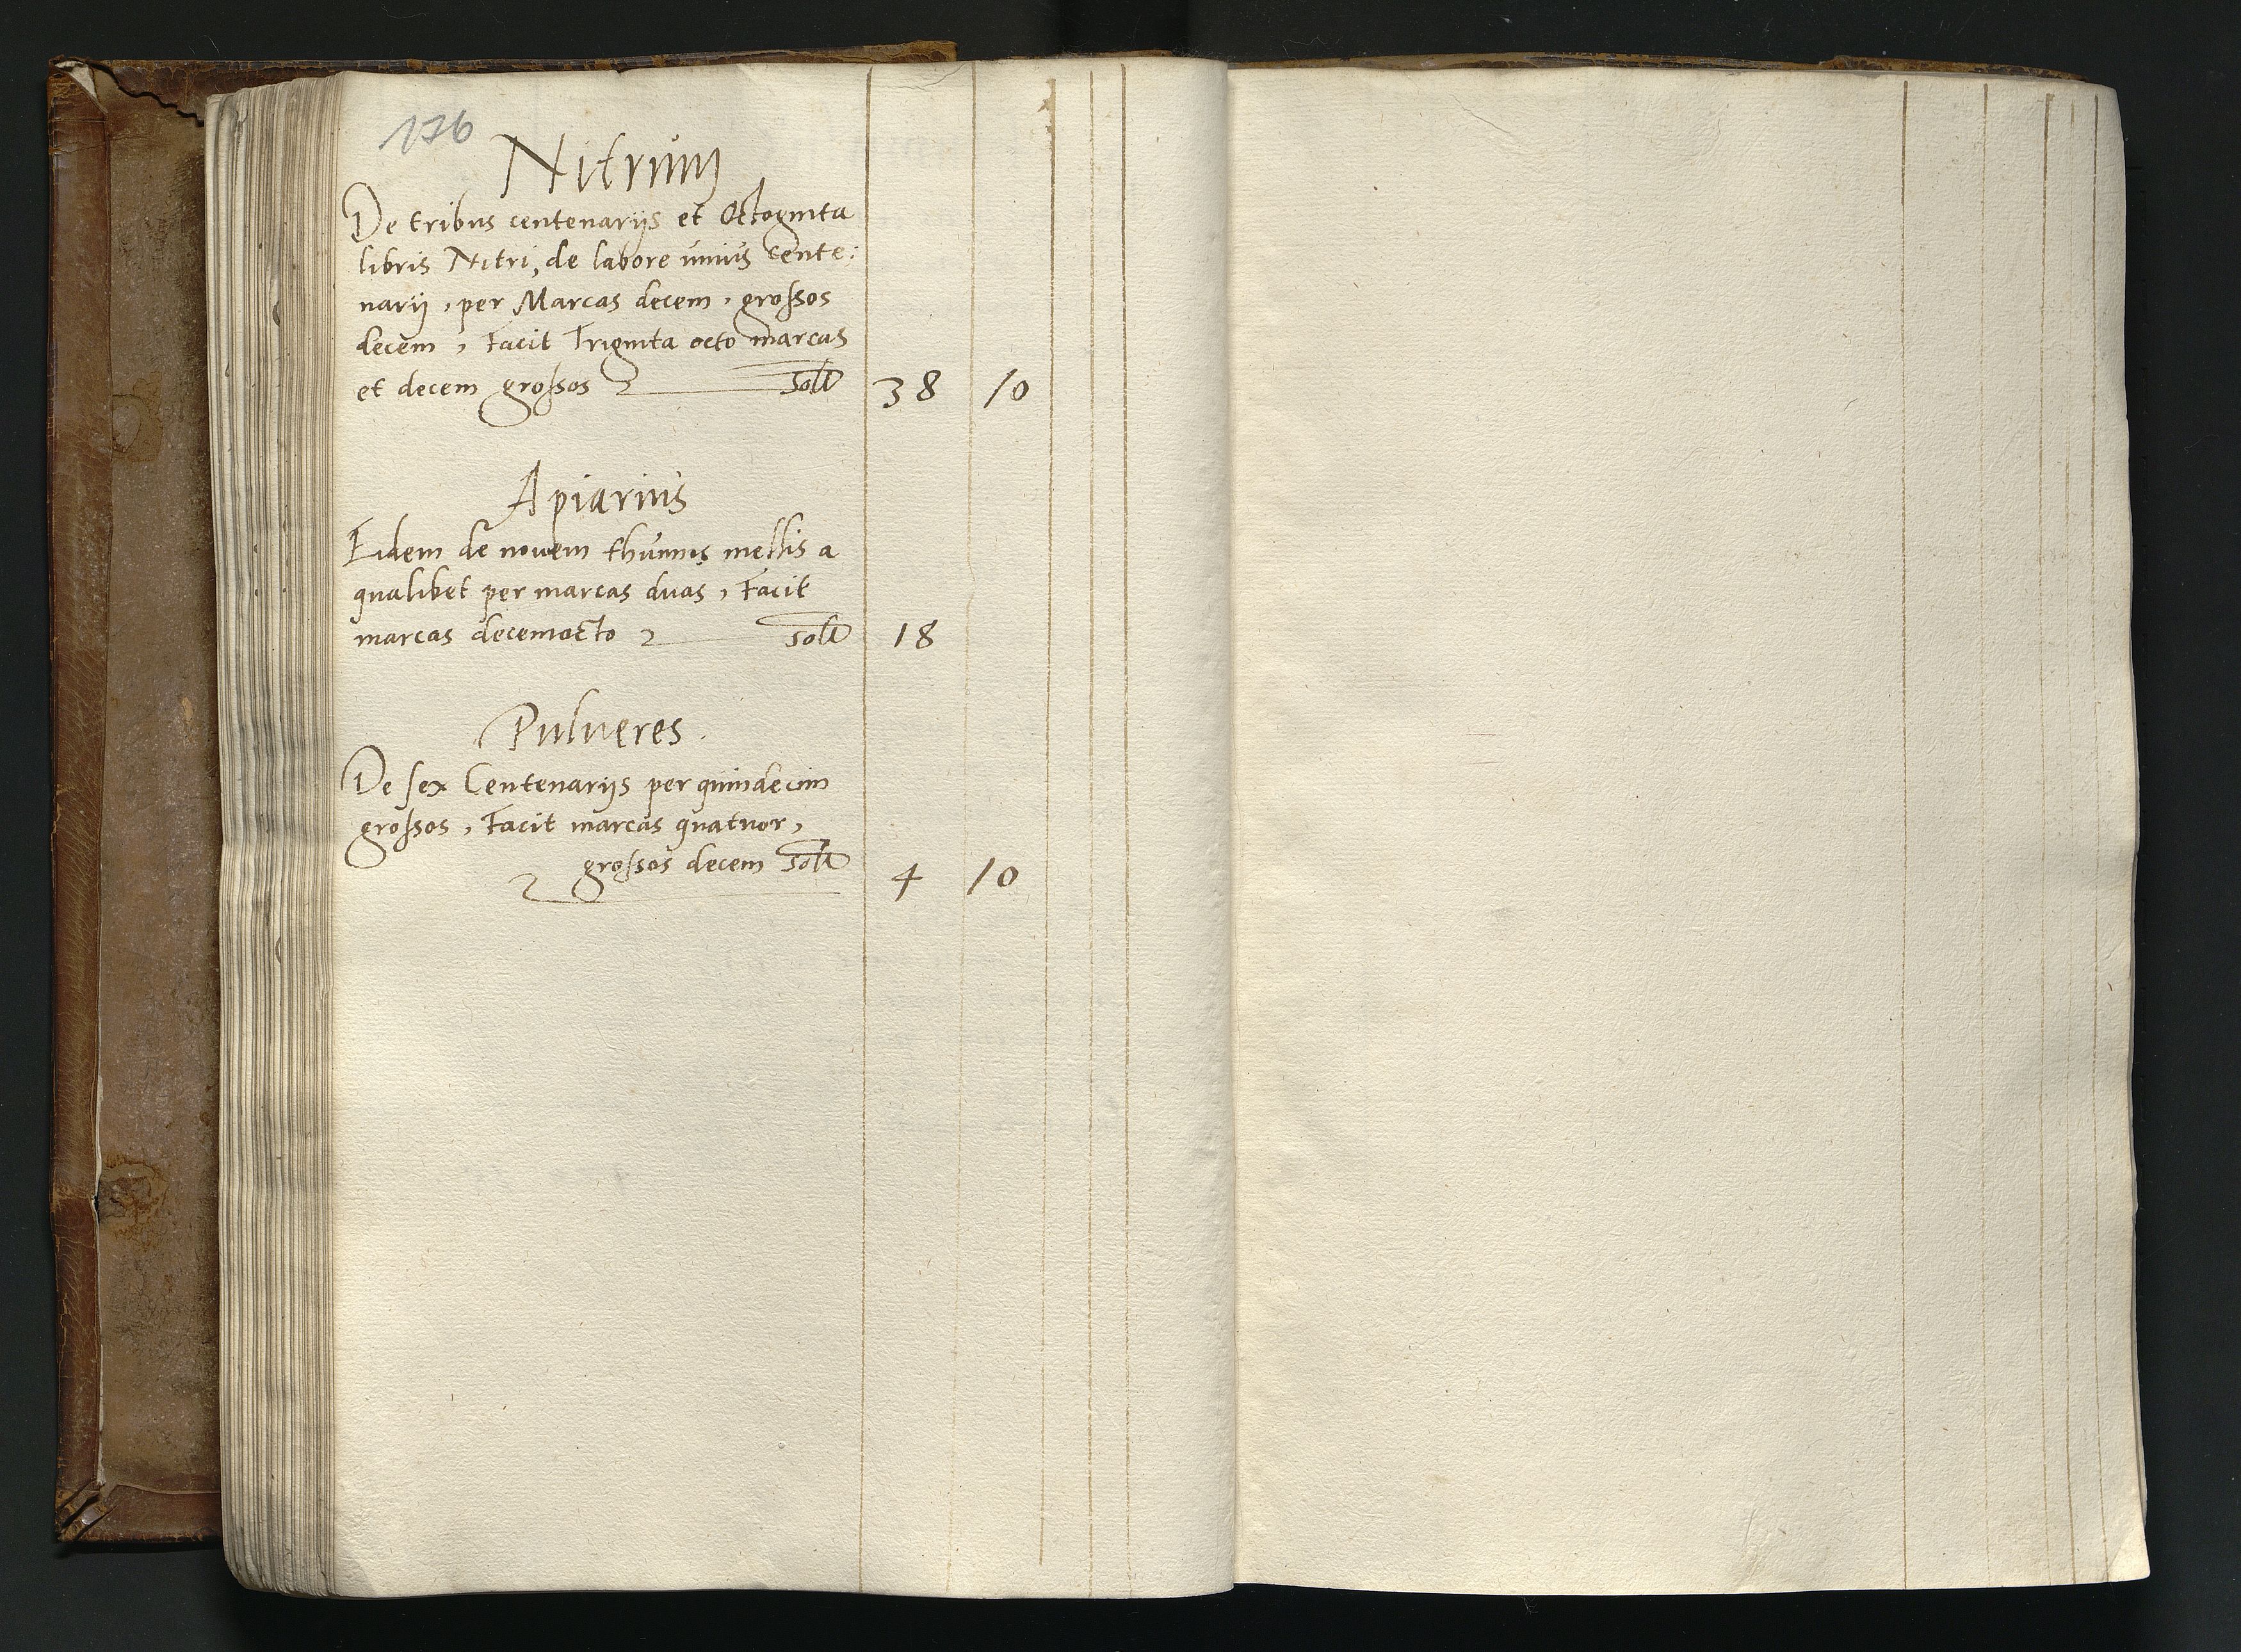 176
Nitrum
De tribus centenarijs et Octoginta
libris Nitri, de labore unius Cente:
narij, per Marcas decem, grossos
decem, Facit Triginta octo marcas
et decem grossos 38 10
Apiarius
Eidem de novem thunnis mellis a
qualibet per marcas duas, Facit
marcas decemocto 18
Pulueres.
De sex Centenarijs per quindecim
grossos, Facit marcas quatuor,
grossos decem 4 10